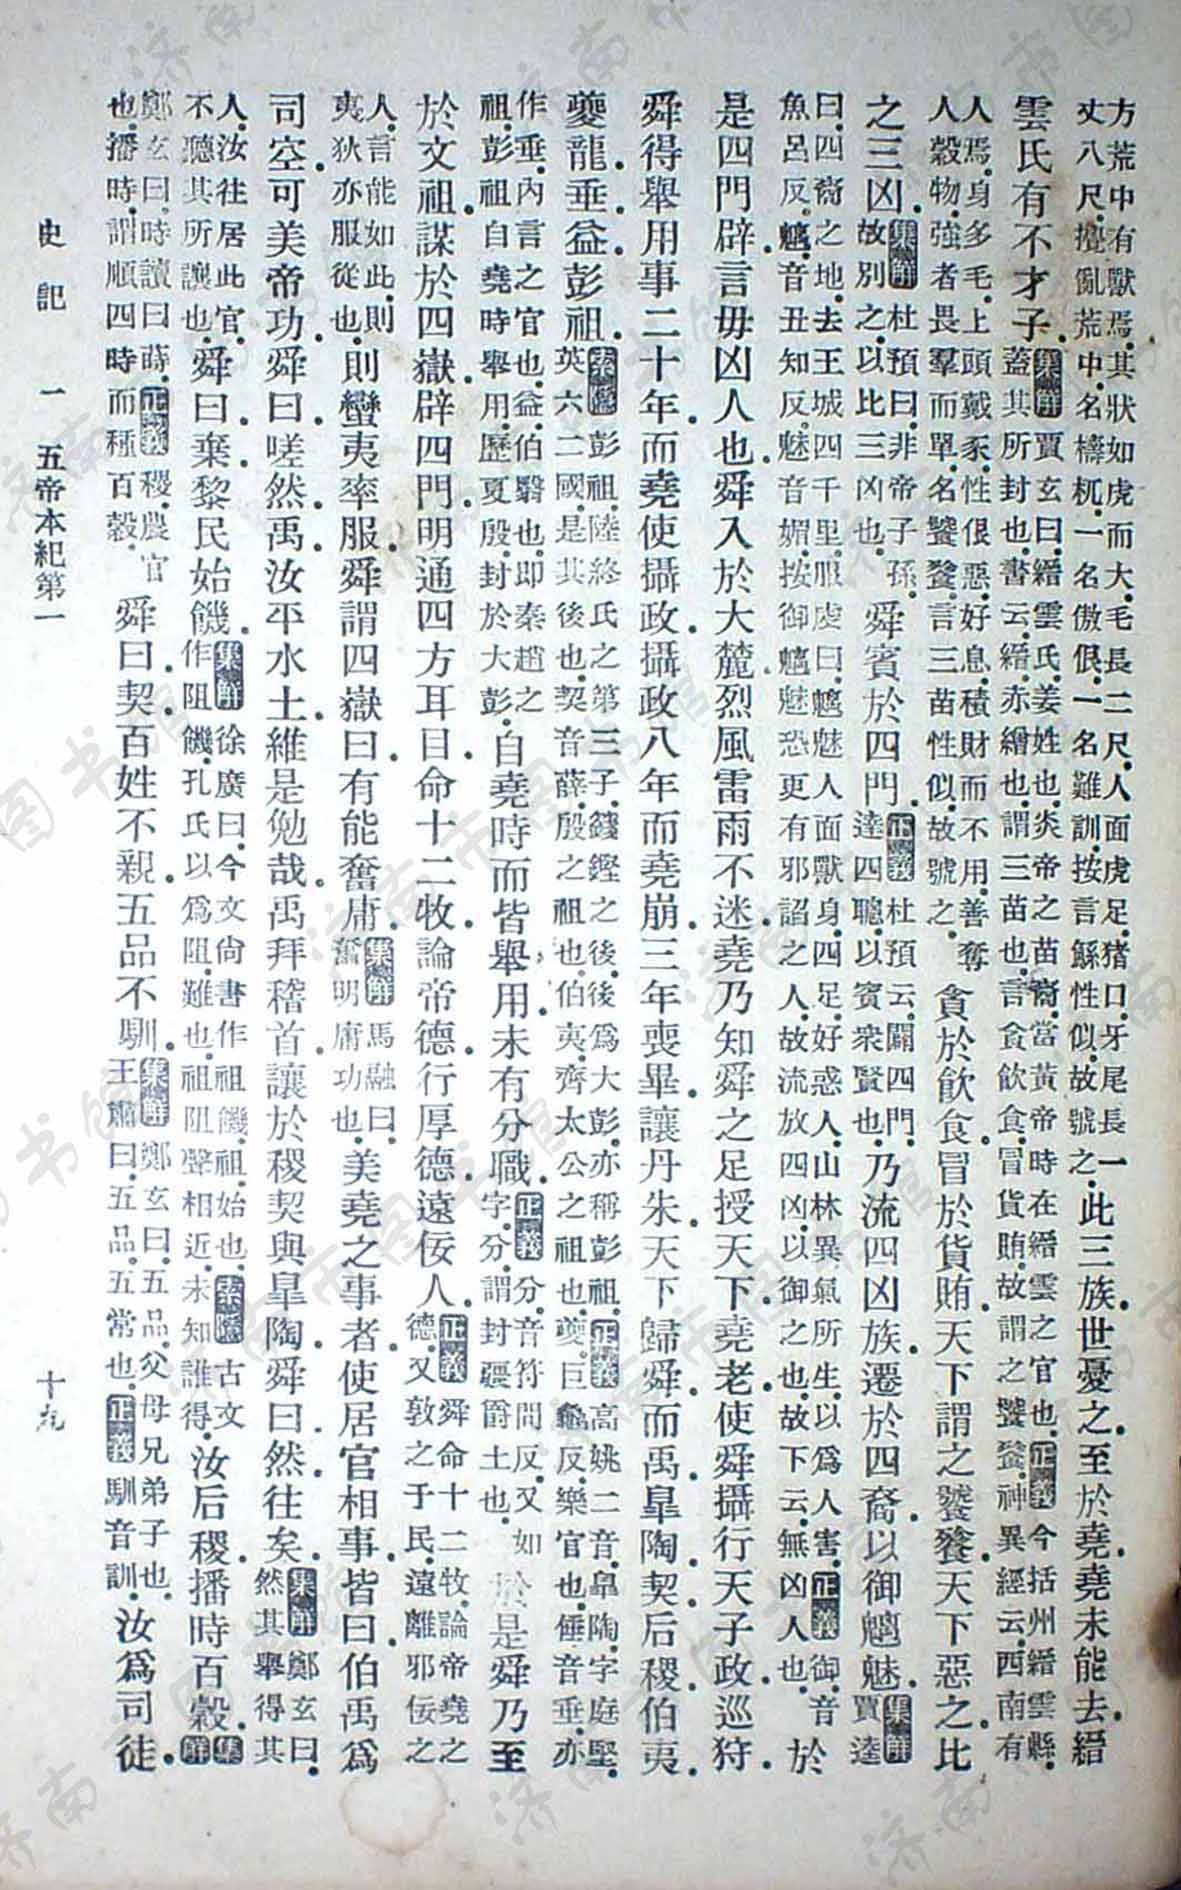 方荒中有獸焉.其狀如虎而大.毛長二尺.人面虎足.猪口.牙尾長一丈八尺.擾亂荒中.名檮杌.一名傲佷.一名難訓.按言鯀性似.故號之.此三族.世憂之.至於堯.堯未能去.縉
雲氏有不才子.集解賈玄曰.縉雲氏.姜姓也.炎帝之苗裔.當黃帝時.在縉雲之官也.正義今括州縉雲縣.蓋其所封也.書云.縉赤繒也.謂三苗也.言貪飲食.冒貨賄.故謂之饕餮.神異經云.西南有
人焉.身多毛.上頭戴豕.性佷惡.好息.積財而不用.善奪人穀物.強者畏羣而單.名饕餮.言三苗性似.故號之.貪於飲食.冒於貨賄.天下謂之饕餮.天下惡之.比
之三凶.集解杜預曰.非帝子孫.故別之.以比三凶也.舜賓於四門.正義杜預云.闢四門.達四聰.以賓衆賢也.乃流四凶族.遷於四裔.以御魑魅.集解賈逵
曰.四裔之地.去王城四千里.服虔曰.魑魅人面獸身四足.好惑人.山林異氣所生.以爲人害.正義御音魚呂反.魑音丑知反.魅音媚.按御魑魅.恐更有邪諂之人.故流放四凶.以御之也.故下云.無凶人也.於
是四門辟.言毋凶人也.舜入於大麓.烈風雷雨不迷.堯乃知舜之足授天下.堯老.使舜攝行天子政.巡狩.
舜得舉用事二十年.而堯使攝政.攝政八年而堯崩.三年喪畢.讓丹朱.天下歸舜.而禹.皐陶.契.后稷.伯夷.
夔.龍.垂.益.彭祖.索隱彭祖.陸終氏之第三子.籛鏗之後.後爲大彭.亦稱彭祖.正義高姚二音.皐陶字庭堅.英六二國.是其後也.契音薛.殷之祖也.伯夷.齊太公之祖也.夔.巨龜反.樂官也.倕音垂.亦
作垂.內言之官也.益.伯翳也.卽秦趙之祖.彭祖自堯時舉用.歷夏殷.封於大彭.自堯時而皆舉用.未有分職.正義分.音符問反.又如字.分.謂封疆爵土也.於是舜乃至
於文祖.謀於四嶽.辟四門.明通四方耳目.命十二牧.論帝德.行厚德.遠佞人.正義舜命十二牧.論帝堯之德.又敦之于民.遠離邪佞之
人.言能如此.則夷狄亦服從也.則蠻夷率服.舜謂四嶽曰.有能奮庸.集解馬融曰.奮明.庸功也.美堯之事者.使居官相事.皆曰.伯禹爲
司空.可美帝功.舜曰.嗟.然.禹.汝平水土.維是勉哉.禹拜稽首.讓於稷契與皐陶.舜曰.然.往矣.集解鄭玄曰.然其舉得其
人.汝往居此官.不聽其所讓也.舜曰.棄.黎民始饑.集解徐廣曰.今文尙書作祖饑.祖始也.索隱古文作阻饑.孔氏以爲阻.難也.祖阻聲相近.未知誰得.汝后稷.播時百穀.集解
鄭玄曰.時讀曰蒔.正義稷.農官也.播時.謂順四時而種百穀.舜曰.契.百姓不親.五品不馴.集解鄭玄曰.五品.父母兄弟子也.王肅曰.五品.五常也.正義馴音訓.汝爲司徒.
史記　一　五帝本紀第一　十九